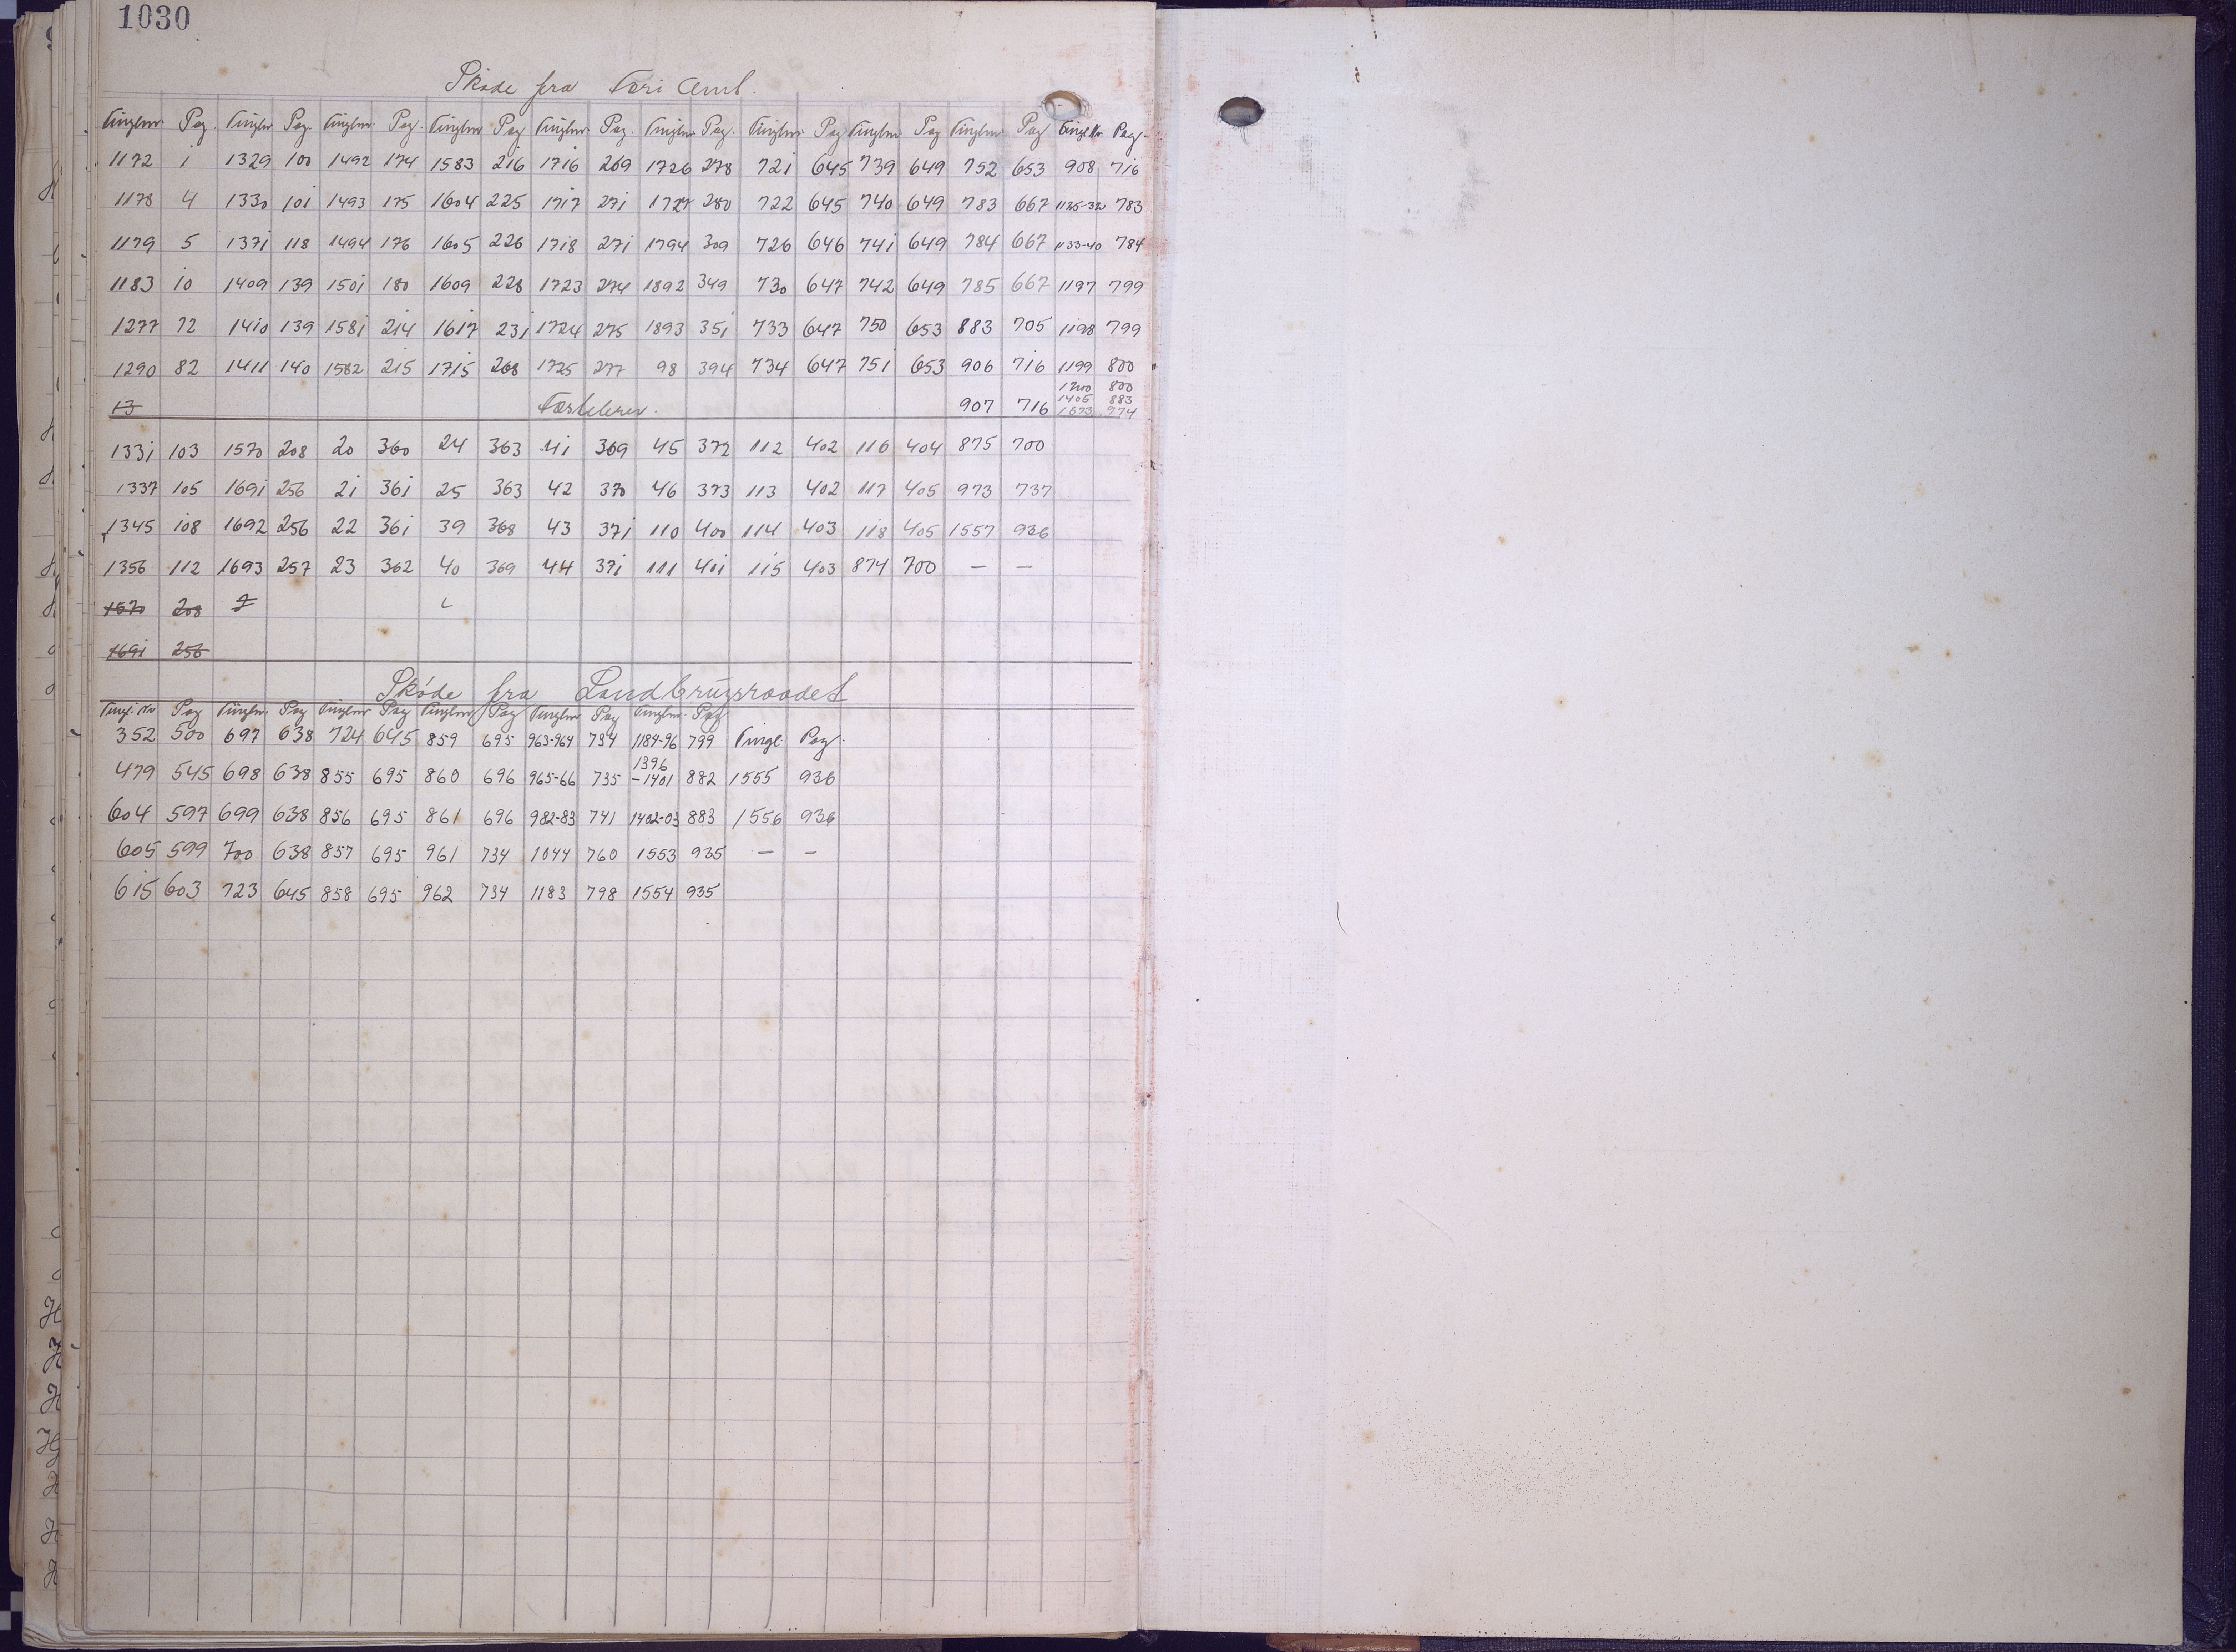 1030
Skøde fra Færø Amt.
Tinglnr. Pag. Tinglnr Pag. Tinglnr. Pag. Tinglnr Pag Tinglnr. Pag. Tinglnr Pag. Tinglnr. Pag Tinglnr. Pag Tinglnr. Pag Tingl.Nr. Pag.
1172 1 1329 100 1492 174 1583 216 1716 269 1726 278 721 645 739 649 752 653 908 716
1178 4 1330 101 1493 175 1604 225 1717 271 1727 280 722 645 740 649 783 667 1125-32 783
1179 5 1371 118 1494 176 1605 226 1718 271 1794 309 726 646 741 649 784 667 1133-40 784
1183 10 1409 139 1501 180 1609 228 1723 274 1892 349 730 647 742 649 785 667 1197 799
1277 72 1410 139 1581 214 1617 231 1724 275 1893 351 733 647 750 653 883 705 1198 799
1290 82 1411 140 1582 215 1715 268 1725 277 98 394 734 647 751 653 906 716 1199 800
1200 800
13 907 716 1405 883
1573 974
1331 103 1570 208 20 360 24 363 41 369 45 372 112 402 116 404 875 700
1337 105 1691 256 21 361 25 363 42 370 46 373 113 402 117 405 973 737
1345 108 1692 256 22 361 39 368 43 371 110 400 114 403 118 405 1557 936
1356 112 1693 257 23 362 40 369 44 371 111 401 115 403 874 700 — —
1570 208
1691 256
Skøde fra Landbrugsraadet
Tingl. Nr Pag Tinglnr. Pag Tinglnr Pag Tinglnr Pag Tinglnr Pag Tinglnr. Pag
352 500 697 638 724 645 859 695 963-964 734 1184-96 799 Tingl. Pag.
479 545 698 638 855 695 860 696 965-66 735 1396-1401 882 1555 936
604 597 699 638 856 695 861 696 982-83 741 1402-03 883 1556 936
605 599 700 638 857 695 961 734 1044 760 1553 935 — —
615 603 723 645 858 695 962 734 1183 798 1554 935